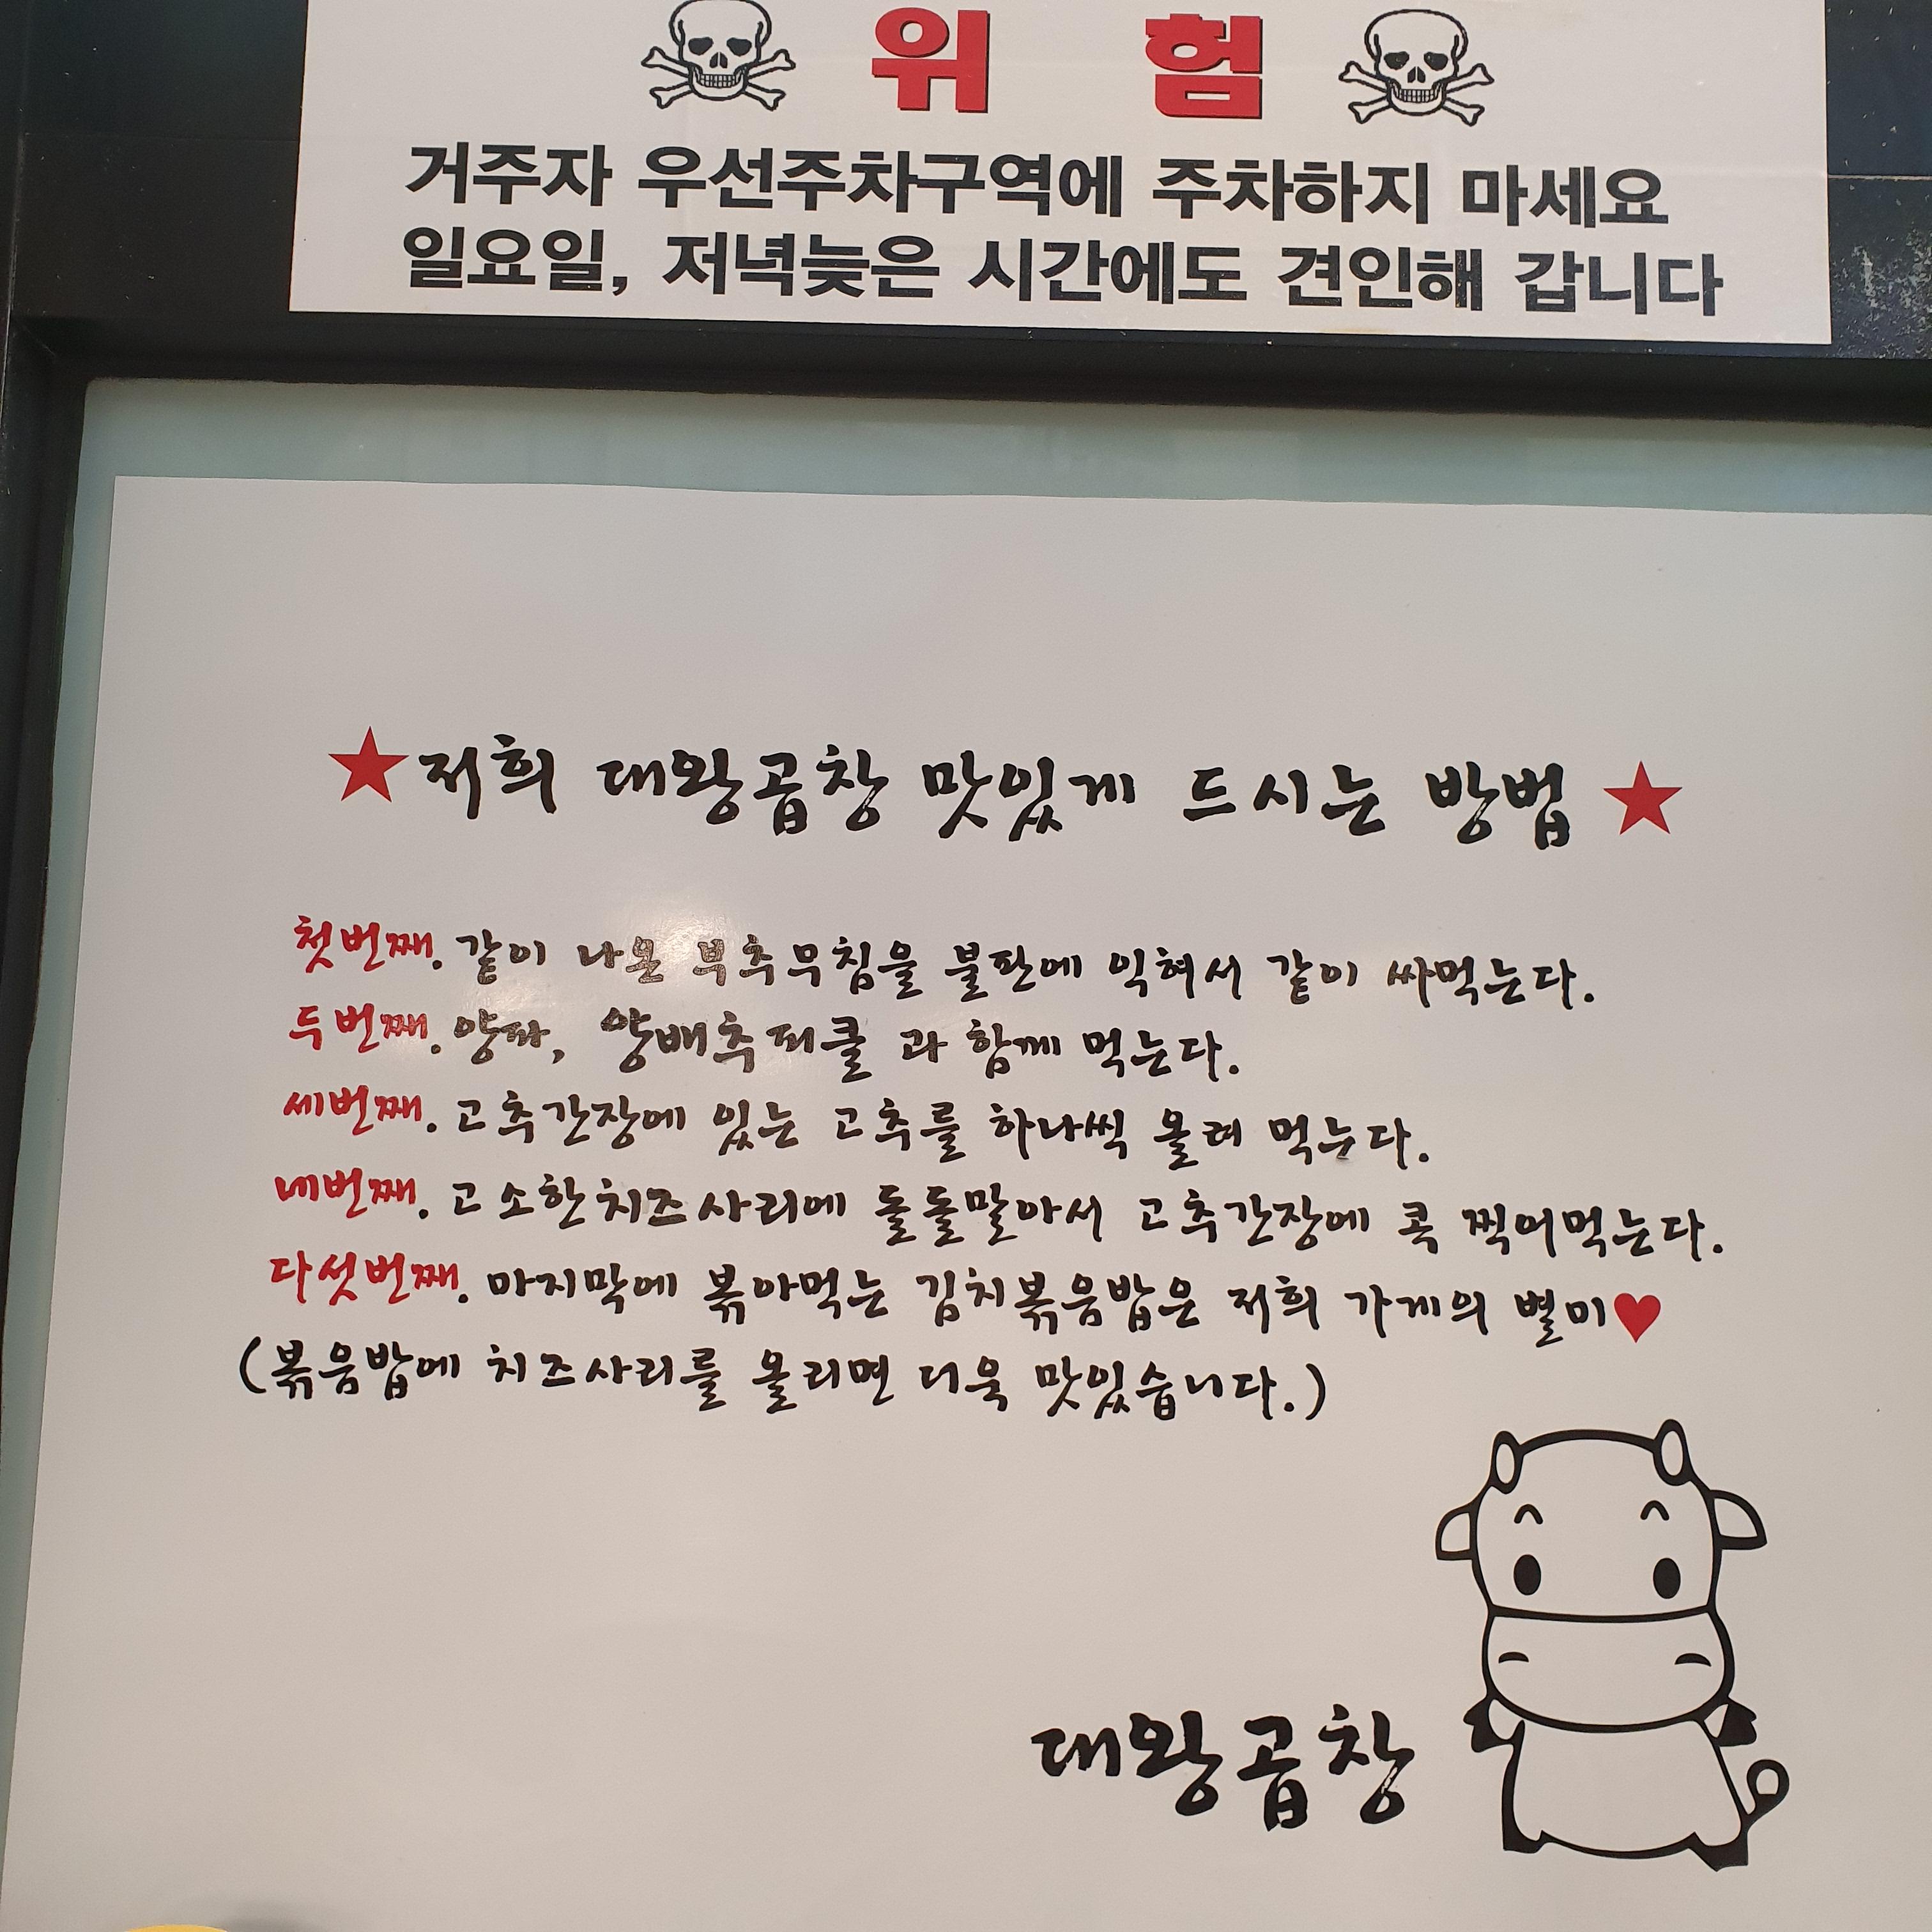 위 험
거주자 우선주차구역에 주차하지 마세요
일요일, 저녁늦은 시간에도 견인해 갑니다
★저희 대왕곱창 맛있게 드시는 방법★
첫번째. 같이 나온 부추무침을 불판에 익혀서 같이 싸먹는다.
두번째. 양파, 양배추피클 과 함께 먹는다.
세번째. 고추간장에 있는 고추를 하나씩 올려 먹는다.
네번째. 고소한치즈사리에 돌돌말아서 고추간장에 콕 찍어먹는다.
다섯번째. 마지막에 볶아먹는 김치볶음밥은 저희 가게의 별미♥
(볶음밥에 치즈사리를 올리면 더욱 맛있습니다.)
대왕곱창